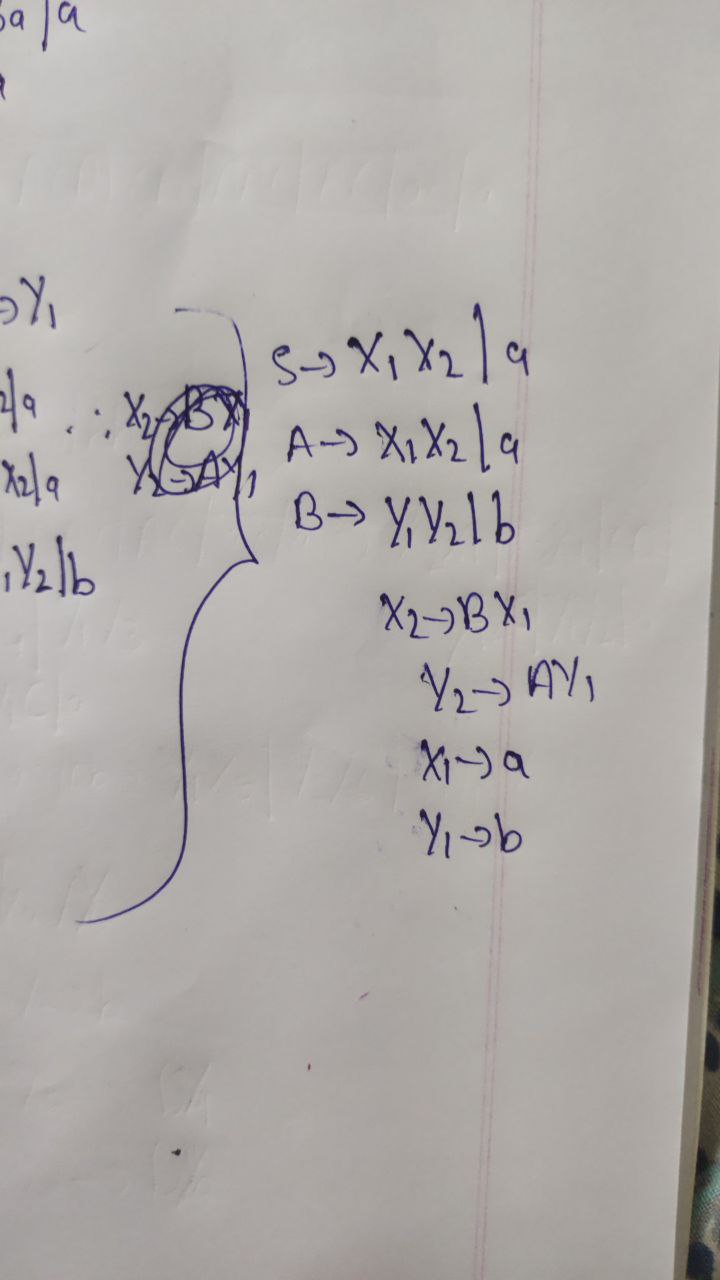 Ba|a
→Y₁
2|a ∴ X₂→BX₁
X₂|a Y₂→AY₁
₁Y₂|b
S→X₁X₂|a
A→X₁X₂|a
B→Y₁Y₂|b
X₂→BX₁
Y₂→AY₁
X₁→a
Y₁→b